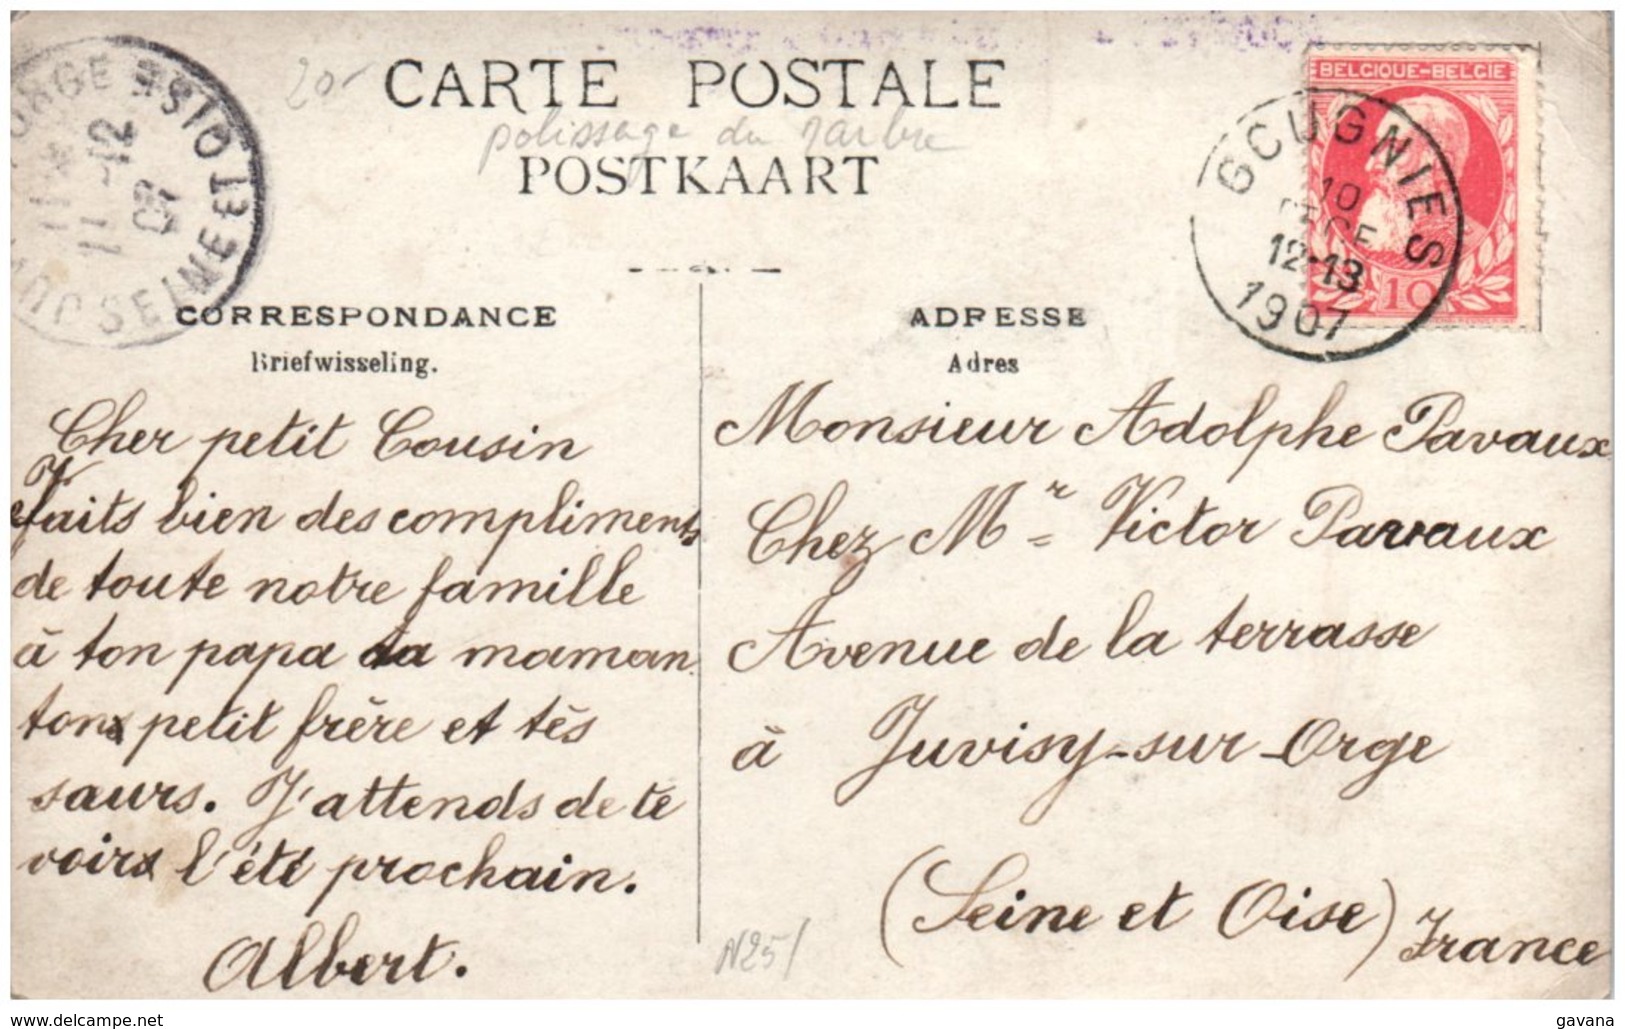 CARTE POSTALE
20-
polissage du marbre
POSTKAART
BELGIQUE-BELGIE
10
GOUGNIES
10
DECE
12-13
1907
ORGE
SEINE ET OISE
11-12
07
CORRESPONDANCE
Briefwisseling.
Cher petit Cousin
Faits bien des compliments
de toute notre famille
à ton papa ta maman
ton petit frère et tès
sœurs. J'attends de te
voir l'été prochain.
Albert.
ADRESSE
Adres
Monsieur Adolphe Pavaux
Chez Mr = Victor Pavaux
Avenue de la terrasse
à Juvisy-sur-Orge
(Seine et Oise) France
N25/
www.delcampe.net
gavana